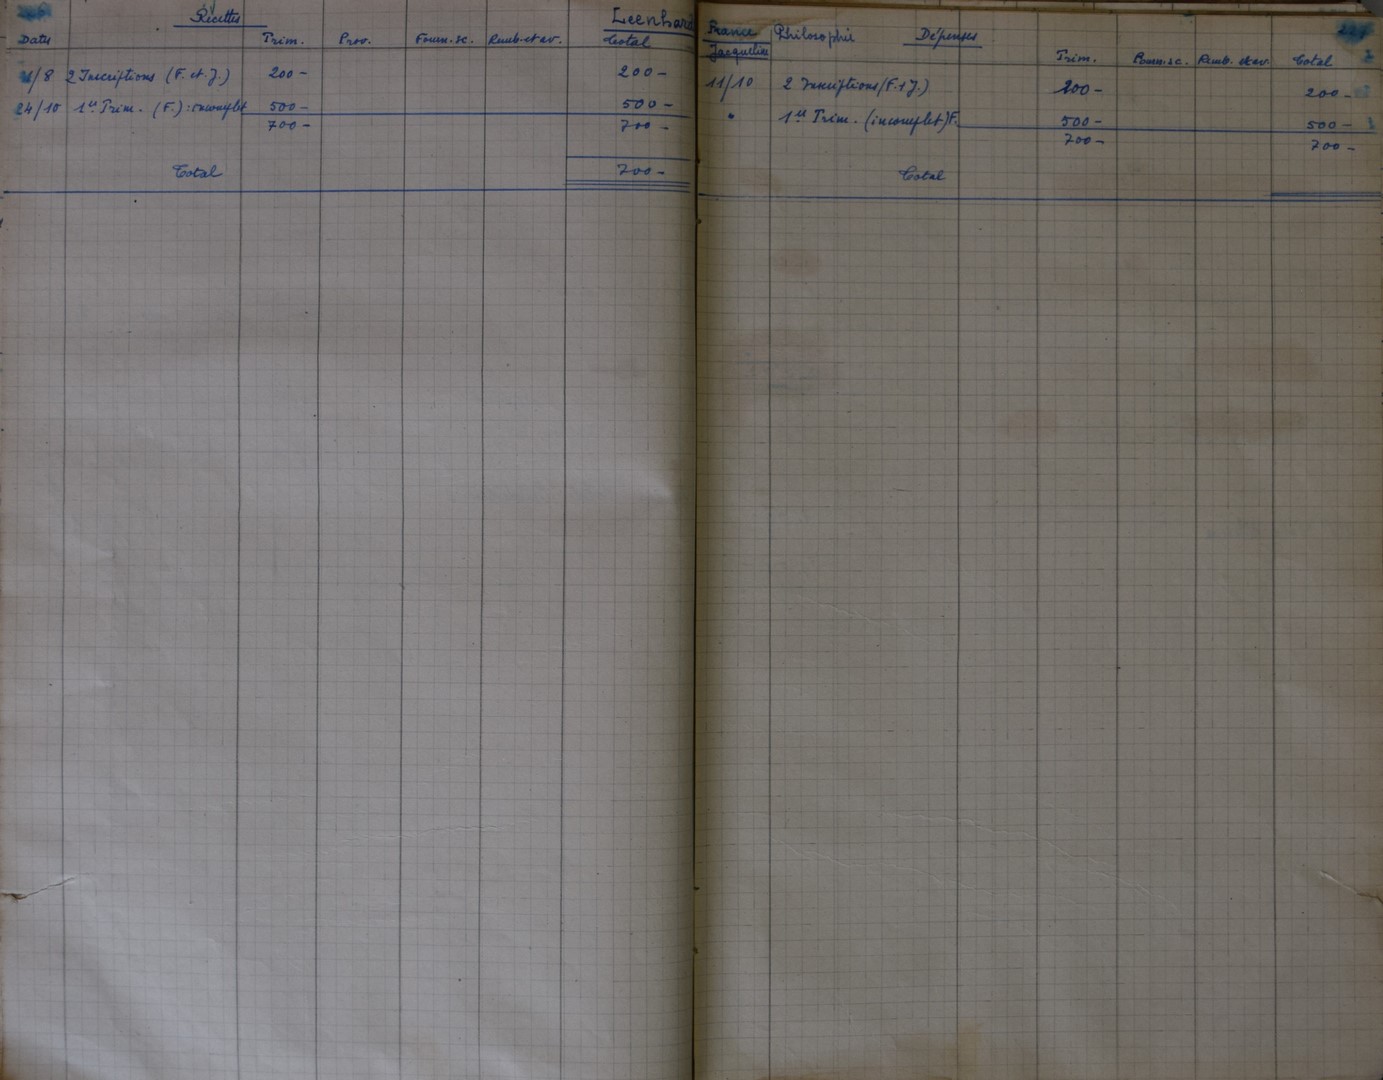 Recettes Leenhard
Dates Trim. Prov. Fourn. sc. Remb. et av. Total
1/8 2 Inscriptions (F. et J.) 200 - 200 -
24/10 1er Trim. (F.) : incomplet 500 - 500 -
700 - 700 -
Total 700 -
France Philosophie Dépenses 227
Jacqueline Trim. Fourn. sc. Remb. et av. Total
11/10 2 Inscriptions (F. & J.) 200 - 200 -
" 1er Trim. (incomplet) F. 500 - 500 -
700 - 700 -
Total